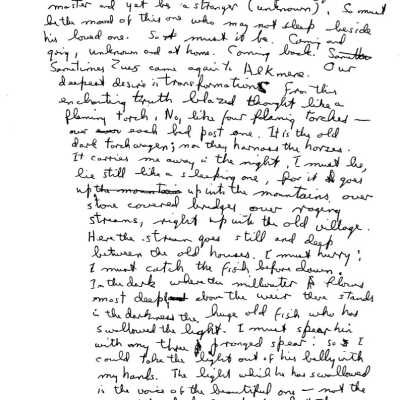 master and yet be a stranger (unknown). So must
be the mood of this one who may not sleep beside
his loved one. So it must be. Coming and
going, unknown and at home. Coming back.
Sometimes Zeus came again to Alkmene. Our
deepest desire is transformation. From this
enchanting truth blazed thought like a
flaming torch. No, like four flaming torches —
one each bed post one. It is the old
dark torchwagen; now they harness the horses.
It carries me away in the night. I must lie,
lie still like a sleeping one, for it goes
up the mountains up into the mountains, over
stone covered bridges over raging
streams, right up into the old village.
Here the stream goes still and deep
between the old houses. I must hurry;
I must catch the fish before dawn.
In the dark where the millwater flows
most deeply above the weir there stands
in the darkness the huge old fish who has
swallowed the light. I must spear him
with my three pronged spear: so I
could take the light out of his belly with
my hands. The light which he has swallowed
is the voice of the beautiful one — not the